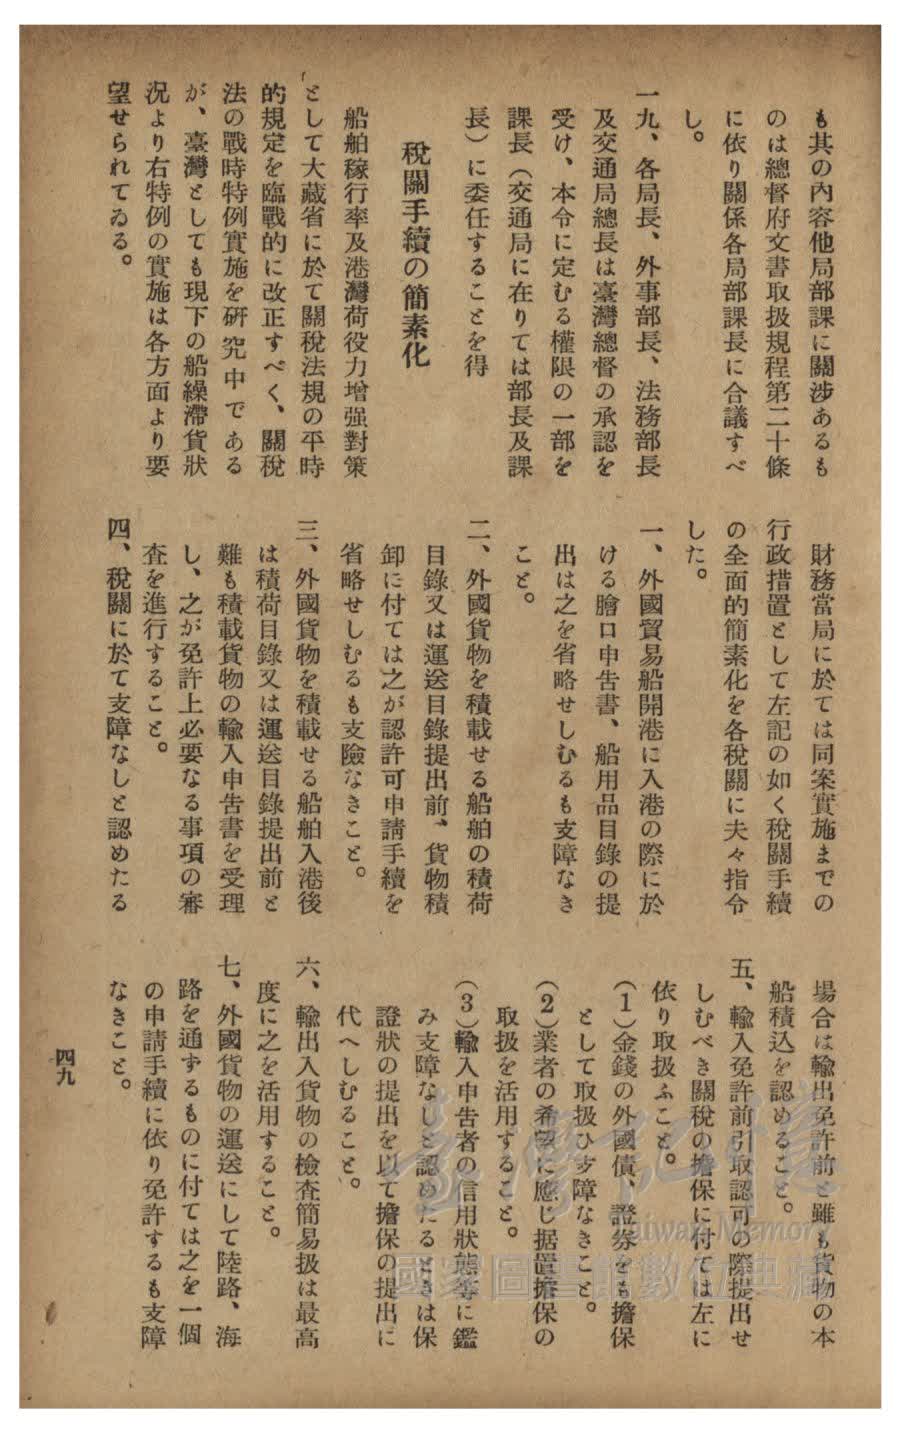 も其の內容他局部課に關涉あるも
のは總督府文書取扱規程第二十條
に依り關係各局部課長に合議すべ
し。
一九、各局長、外事部長、法務部長
及交通局總長は臺灣總督の承認を
受け、本令に定むる權限の一部を
課長(交通局に在りては部長及課
長)に委任することを得
稅關手續の簡素化
船舶稼行率及港灣荷役力增强對策
として大藏省に於て關稅法規の平時
的規定を臨戰的に改正すべく、關稅
法の戰時特例實施を硏究中である
が、臺灣としても現下の船繰滯貨狀
況より右特例の實施は各方面より要
望せられてゐる。
財務當局に於ては同案實施までの
行政措置として左記の如く稅關手續
の全面的簡素化を各稅關に夫々指令
した。
一、外國貿易船開港に入港の際に於
ける艙口申告書、船用品目錄の提
出は之を省略せしむるも支障なき
こと。
二、外國貨物を積載せる船舶の積荷
目錄又は運送目錄提出前、貨物積
卸に付ては之が認許可申請手續を
省略せしむるも支險なきこと。
三、外國貨物を積載せる船舶入港後
は積荷目錄又は運送目錄提出前と
難も積載貨物の輸入申告書を受理
し、之が免許上必要なる事項の審
査を進行すること。
四、稅關に於て支障なしと認めたる
場合は輸出免許前と雖も貨物の本
船積込を認めること。
五、輸入免許前引取認可の際提出せ
しむべき關稅の擔保に付ては左に
依り取扱ふこと。
(1)金錢の外國債、證券をも擔保
として取扱ひ支障なきこと。
(2)業者の希望に應じ据置擔保の
取扱を活用すること。
(3)輸入申告者の信用狀態等に鑑
み支障なしと認めたるときは保
證狀の提出を以て擔保の提出に
代へしむること。
六、輸出入貨物の檢査簡易扱は最高
度に之を活用すること。
七、外國貨物の運送にして陸路、海
路を通ずるものに付ては之を一個
の申請手續に依り免許するも支障
なきこと。
四九
臺灣記憶
Taiwan Memory
國家圖書館數位典藏